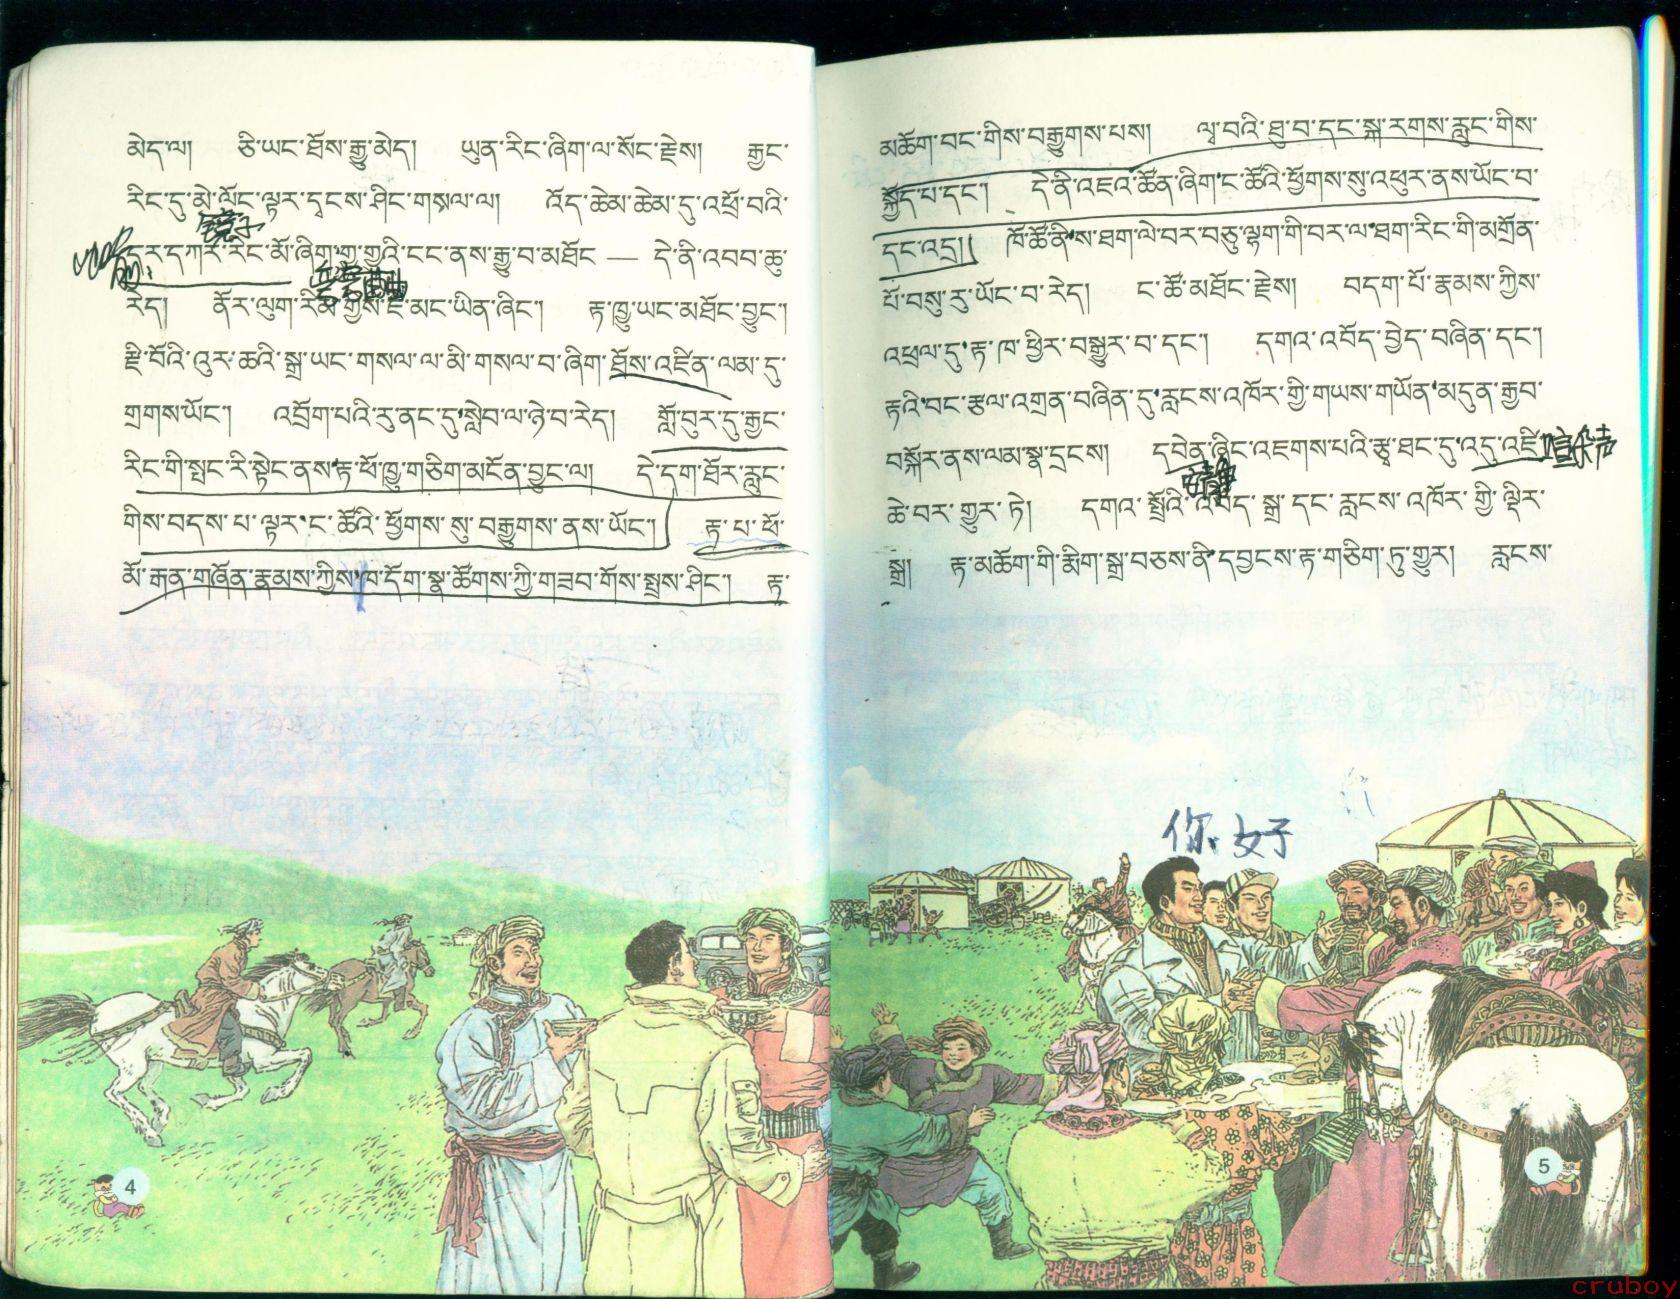 མེད་ལ། ཅི་ཡང་ཐོས་རྒྱུ་མེད། ཡུན་རིང་ཞིག་ལ་སོང་རྗེས། རྒྱང་
རིང་དུ་མེ་ལོང་ལྟར་དྭངས་ཤིང་གསལ་ལ། འོད་ཆེམ་ཆེམ་དུ་འཕྲོ་བའི་
镜子
དར་དཀར་རིང་མོ་ཞིག་གྱ་གྱུའི་ངང་ནས་རྒྱུ་བ་མཐོང — དེ་ནི་འབབ་ཆུ་
རེད། ནོར་ལུག་རིམ་གྱིས་ཇེ་མང་ཡིན་ཞིང་། རྟ་ཁྱུ་ཡང་མཐོང་བྱུང་།
རྫི་བོའི་འུར་ཆའི་སྒྲ་ཡང་གསལ་ལ་མི་གསལ་བ་ཞིག་ཐོས་འཛིན་ལམ་དུ་
གྲགས་ཡོང་། འབྲོག་པའི་རུ་ནང་དུ་སླེབ་ལ་ཉེ་བ་རེད། གློ་བུར་དུ་རྒྱང་
རིང་གི་སྤང་རི་སྟེང་ནས་རྟ་ཕོ་ཁྱུ་གཅིག་མངོན་བྱུང་ལ། དེ་དག་ཐོར་རླུང་
གིས་བདས་པ་ལྟར་ང་ཚོའི་ཕྱོགས་སུ་བརྒྱུགས་ནས་ཡོང་། རྟ་པ་ཕོ་
མོ་རྒན་གཞོན་རྣམས་ཀྱིས་ཁ་དོག་སྣ་ཚོགས་ཀྱི་གཟབ་གོས་སྤྲས་ཤིང་། རྟ་
4
མཆོག་བང་གིས་བརྒྱུགས་པས། ལྭ་བའི་ཐུ་བ་དང་སྐ་རགས་རླུང་གིས་
སྐྱོད་པ་དང་། དེ་ནི་འཇའ་ཚོན་ཞིག་ང་ཚོའི་ཕྱོགས་སུ་འཕུར་ནས་ཡོང་བ་
དང་འདྲ། ཁོ་ཚོ་ནི་ས་ཐག་ལེ་བར་བཅུ་ལྷག་གི་བར་ལ་ཐག་རིང་གི་མགྲོན་
པོ་བསུ་རུ་ཡོང་བ་རེད། ང་ཚོ་མཐོང་རྗེས། བདག་པོ་རྣམས་ཀྱིས་
འཕྲལ་དུ་རྟ་ཁ་ཕྱིར་བསྒྱུར་བ་དང་། དགའ་འབོད་བྱེད་བཞིན་དང་།
རྟའི་བང་རྩལ་འགྲན་བཞིན་དུ་རླངས་འཁོར་གྱི་གཡས་གཡོན་མདུན་རྒྱབ་
བསྐོར་ནས་ལམ་སྣ་དྲངས། དབེན་ཞིང་འཇགས་པའི་རྩྭ་ཐང་དུ་འདུ་འཛི་
ཆེ་བར་གྱུར་ཏེ། དགའ་སྤྲོའི་འབོད་སྒྲ་དང་རླངས་འཁོར་གྱི་ལྡིར་
སྒྲ། རྟ་མཆོག་གི་རྨིག་སྒྲ་བཅས་ནི་དབྱངས་རྟ་གཅིག་ཏུ་གྱུར། རླངས་
你好
5
cruboy